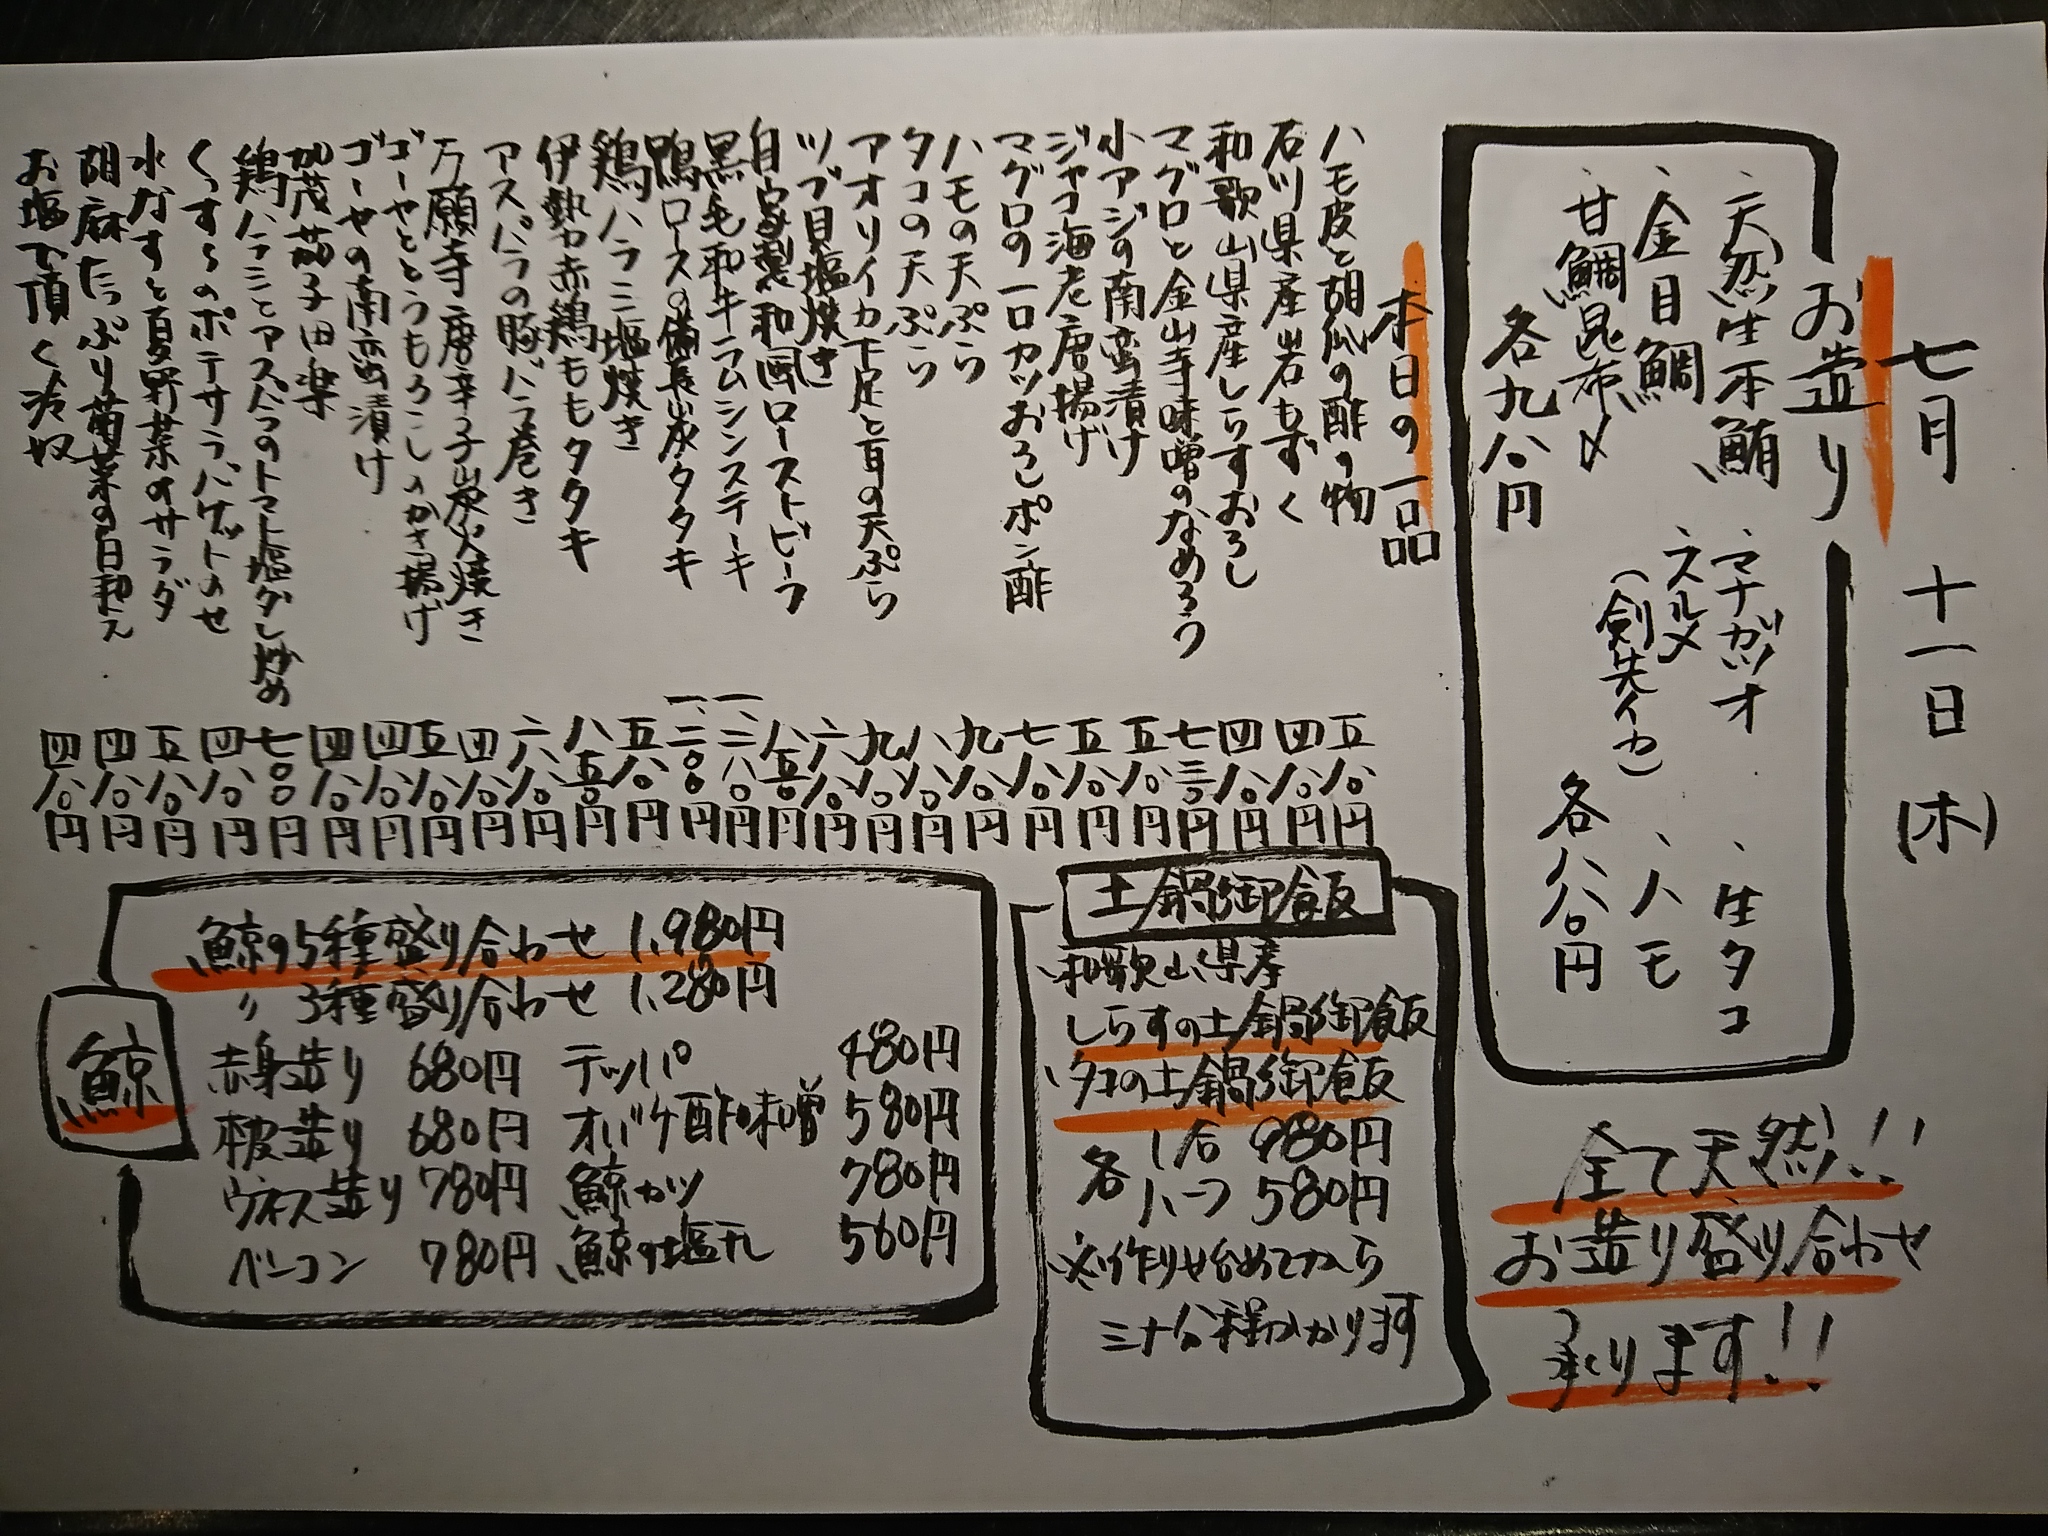 七月 十一日 (木)
お造り
、天然生本鮪 、マナガツオ 、生タコ
、金目鯛 、スルメ 、ハモ
(剣先イカ)
、甘鯛昆布〆 各八八〇円
各九八〇円
全て天然!!
お造り盛り合わせ
承ります!!
本日の一品
ハモ皮と胡瓜の酢の物 五八〇円
石川県産岩もずく 四八〇円
和歌山県産しらすおろし 四八〇円
マグロと金山寺味噌のなめろう 七三〇円
小アジの南蛮漬け 五八〇円
ジャコ海老唐揚げ 五八〇円
マグロの一口カツおろしポン酢 七八〇円
ハモの天ぷら 九八〇円
タコの天ぷら 八八〇円
アオリイカ下足と耳の天ぷら 九八〇円
ツブ貝塩焼き 六八〇円
自家製和風ローストビーフ 八五〇円
黒毛和牛ラムシンステーキ 一、二八〇円
鴨ロースの備長炭タタキ 一、二〇〇円
鶏ハラミ塩焼き 五八〇円
伊勢赤鶏ももタタキ 八五〇円
アスパラの豚バラ巻き 六八〇円
万願寺唐辛子炭火焼き 四八〇円
ゴーヤととうもろこしのかき揚げ 五八〇円
ゴーヤの南蛮漬け 四八〇円
加茂茄子田楽 四八〇円
鶏ハラミとアスパラのトマト塩ダレ炒め 七〇〇円
くんすらのポテサラ、バゲットのせ 四八〇円
水なすと夏野菜のサラダ 五八〇円
胡麻たっぷり菊菜の白和え 四八〇円
お塩で頂く冷奴 四八〇円
土鍋御飯
和歌山県産
しらすの土鍋御飯
、タコの土鍋御飯
各 1合 980円
ハーフ 580円
※作り始めてから
三十分程かかります
鯨
鯨の5種盛り合わせ 1,980円
〃 3種盛り合わせ 1,280円
赤身造り 680円 テッパ 480円
本皮造り 680円 オバケ酢味噌 580円
ウネス造り 780円 鯨カツ 780円
ベーコン 780円 鯨の塩干し 560円